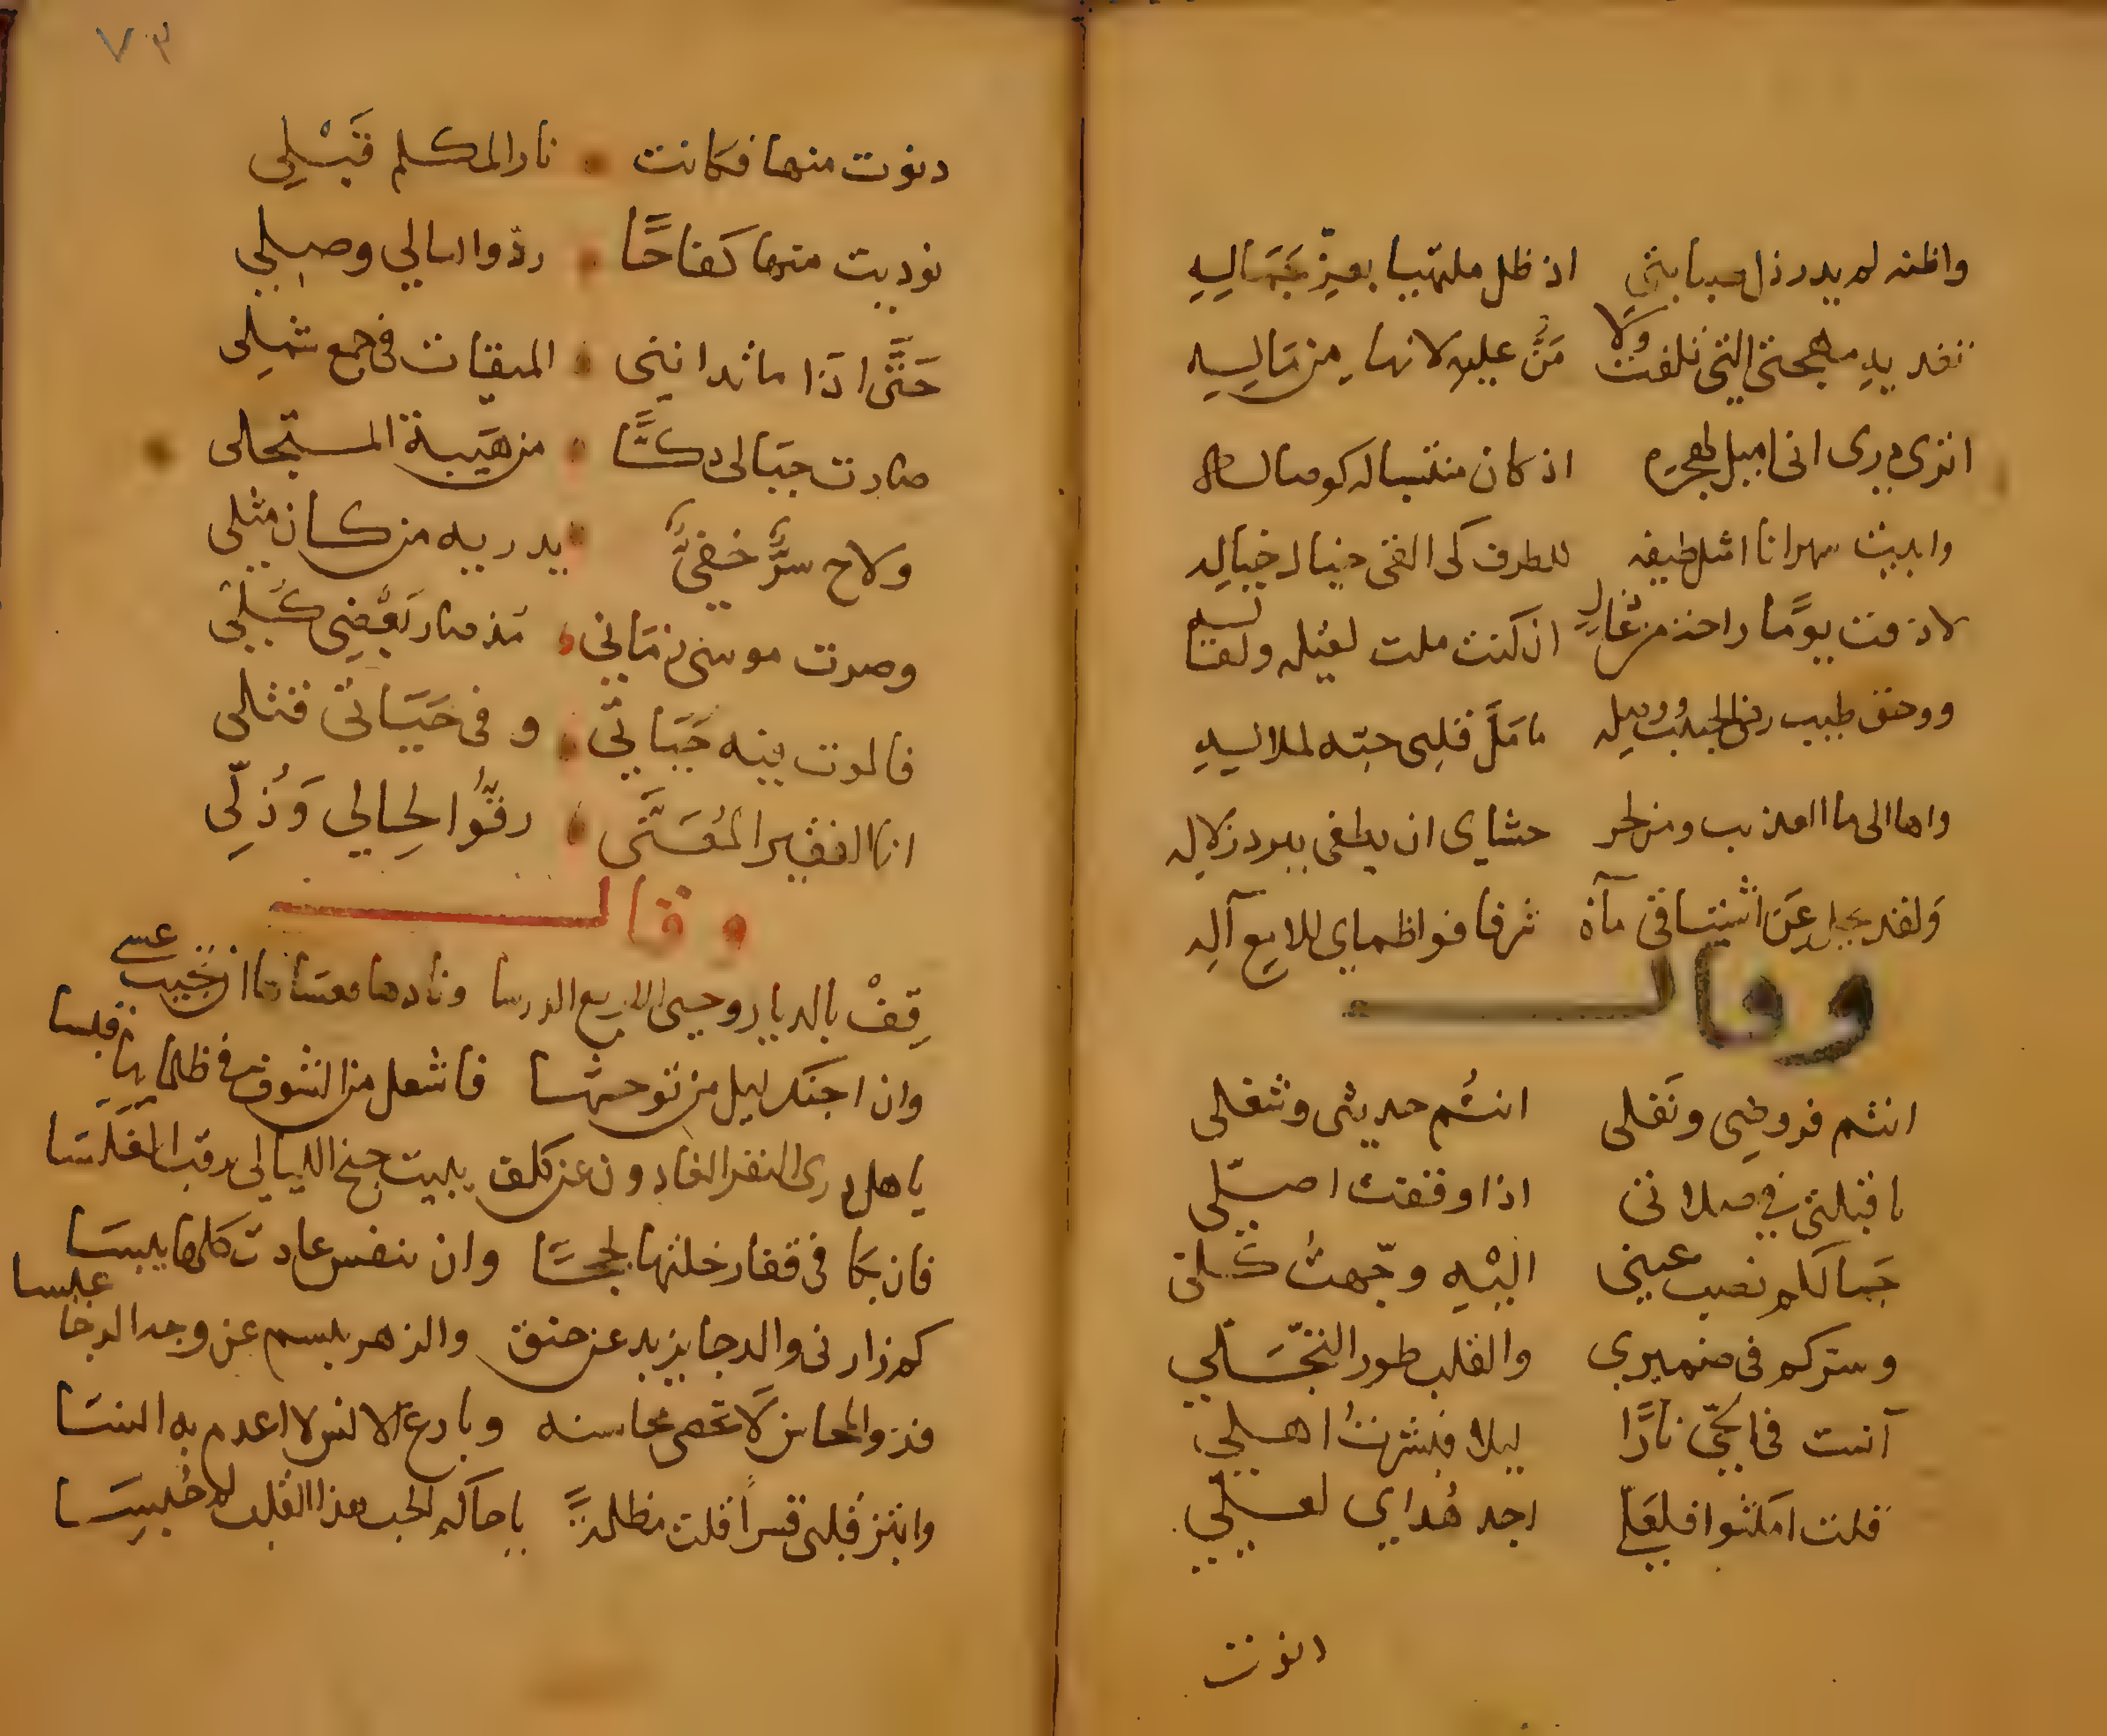 واظنه لم يدر ذل صبابتي اذ ظل ملتهيا بعز جماله
تفديه مهجتي التي تلفت ولا من عليه لانها من ماله
اترى درى اني احن لهجره اذ كان مشتبها له كوصاله
وابيت سهرانا امثل طيفه للطرف كي القى خيال خياله
لا ذقت يوما راحة من عاذل ان كنت ملت لقيله ولقاله
ووحق طيب رضى الحبيب ووصله ما مل قلبي حبه لملاله
واها الى ما العذيب ومن لحر حشاي ان يطفى ببرد زلاله
ولقد يجل عن اشتياقي مآه شرفا فواظماي للامع آله
وقال
انتم فروضي ونفلي انتم حديثي وشغلي
يا قبلتي في صلاتي اذا وقفت اصلي
جمالكم نصب عيني اليه وجهت كلي
وسركم في ضميري والقلب طور التجلي
آنست في الحي نارا ليلا فبشرت اهلي
قلت امكثوا فلعلي اجد هداي لعلي
دنوت
٧٣
دنوت منها فكانت نار المكلم قبلي
نوديت منها كفاحا ردوا ليالي وصلي
حتى اذا ما تدانى الميقات في جمع شملي
صارت جبالي دكا من هيبة المتجلي
ولاح سر خفي يدريه من كان مثلي
وصرت موسى زماني مذ صار بعضي كلي
فالموت فيه حياتي وفي حياتي قتلي
انا الفقير المعنى رقوا لحالي وذلي
وقال
قف بالديار وحيي الاربع الدرسا ونادها فعساها ان تجيب عسى
وان اجنك ليل من توحشها فاشعل من الشوق في ظلمايها قبسا
يا هل درى النفر الغادون عن كلف يبيت جنح الليالي يرقب الغلسا
فان بكا في قفار خلتها لججا وان تنفس عادت كلها يبسا
كم زارني والدجا يزبد عن حنق والزهر يبسم عن وجه الدجا عبسا
فذو المحاسن لا تحصى محاسنه وبارع الانس لا اعدم به انسا
وابتز قلبي قسرا قلت مظلمة يا حاكم الحب هذا القلب لم حبسا